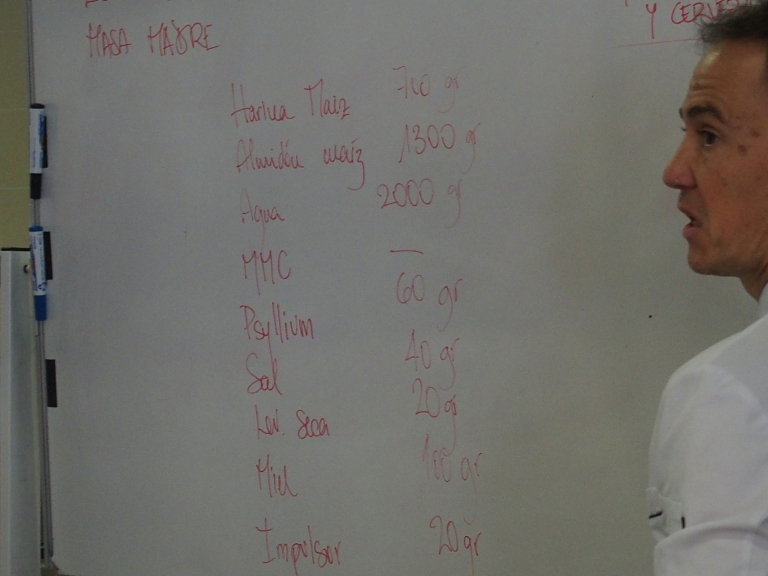 Y CERVE
MASA MADRE
Harina Maiz 700 gr
Almidón maíz 1300 gr
Agua 2000 gr
MMC —
Psyllium 60 gr
Sal 40 gr
Lev. Seca 20 gr
Miel 100 gr
Impulsor 20 gr